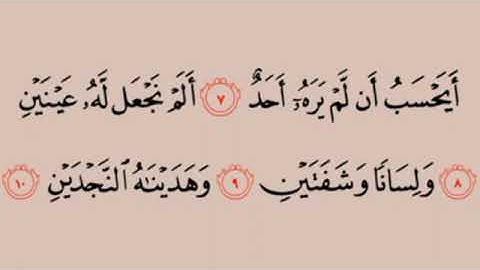 أَيَحْسَبُ أَن لَّمْ يَرَهُۥٓ أَحَدٌ ٧ أَلَمْ نَجْعَل لَّهُۥ عَيْنَيْنِ
٨ وَلِسَانًا وَشَفَتَيْنِ ٩ وَهَدَيْنَٰهُ ٱلنَّجْدَيْنِ ١٠